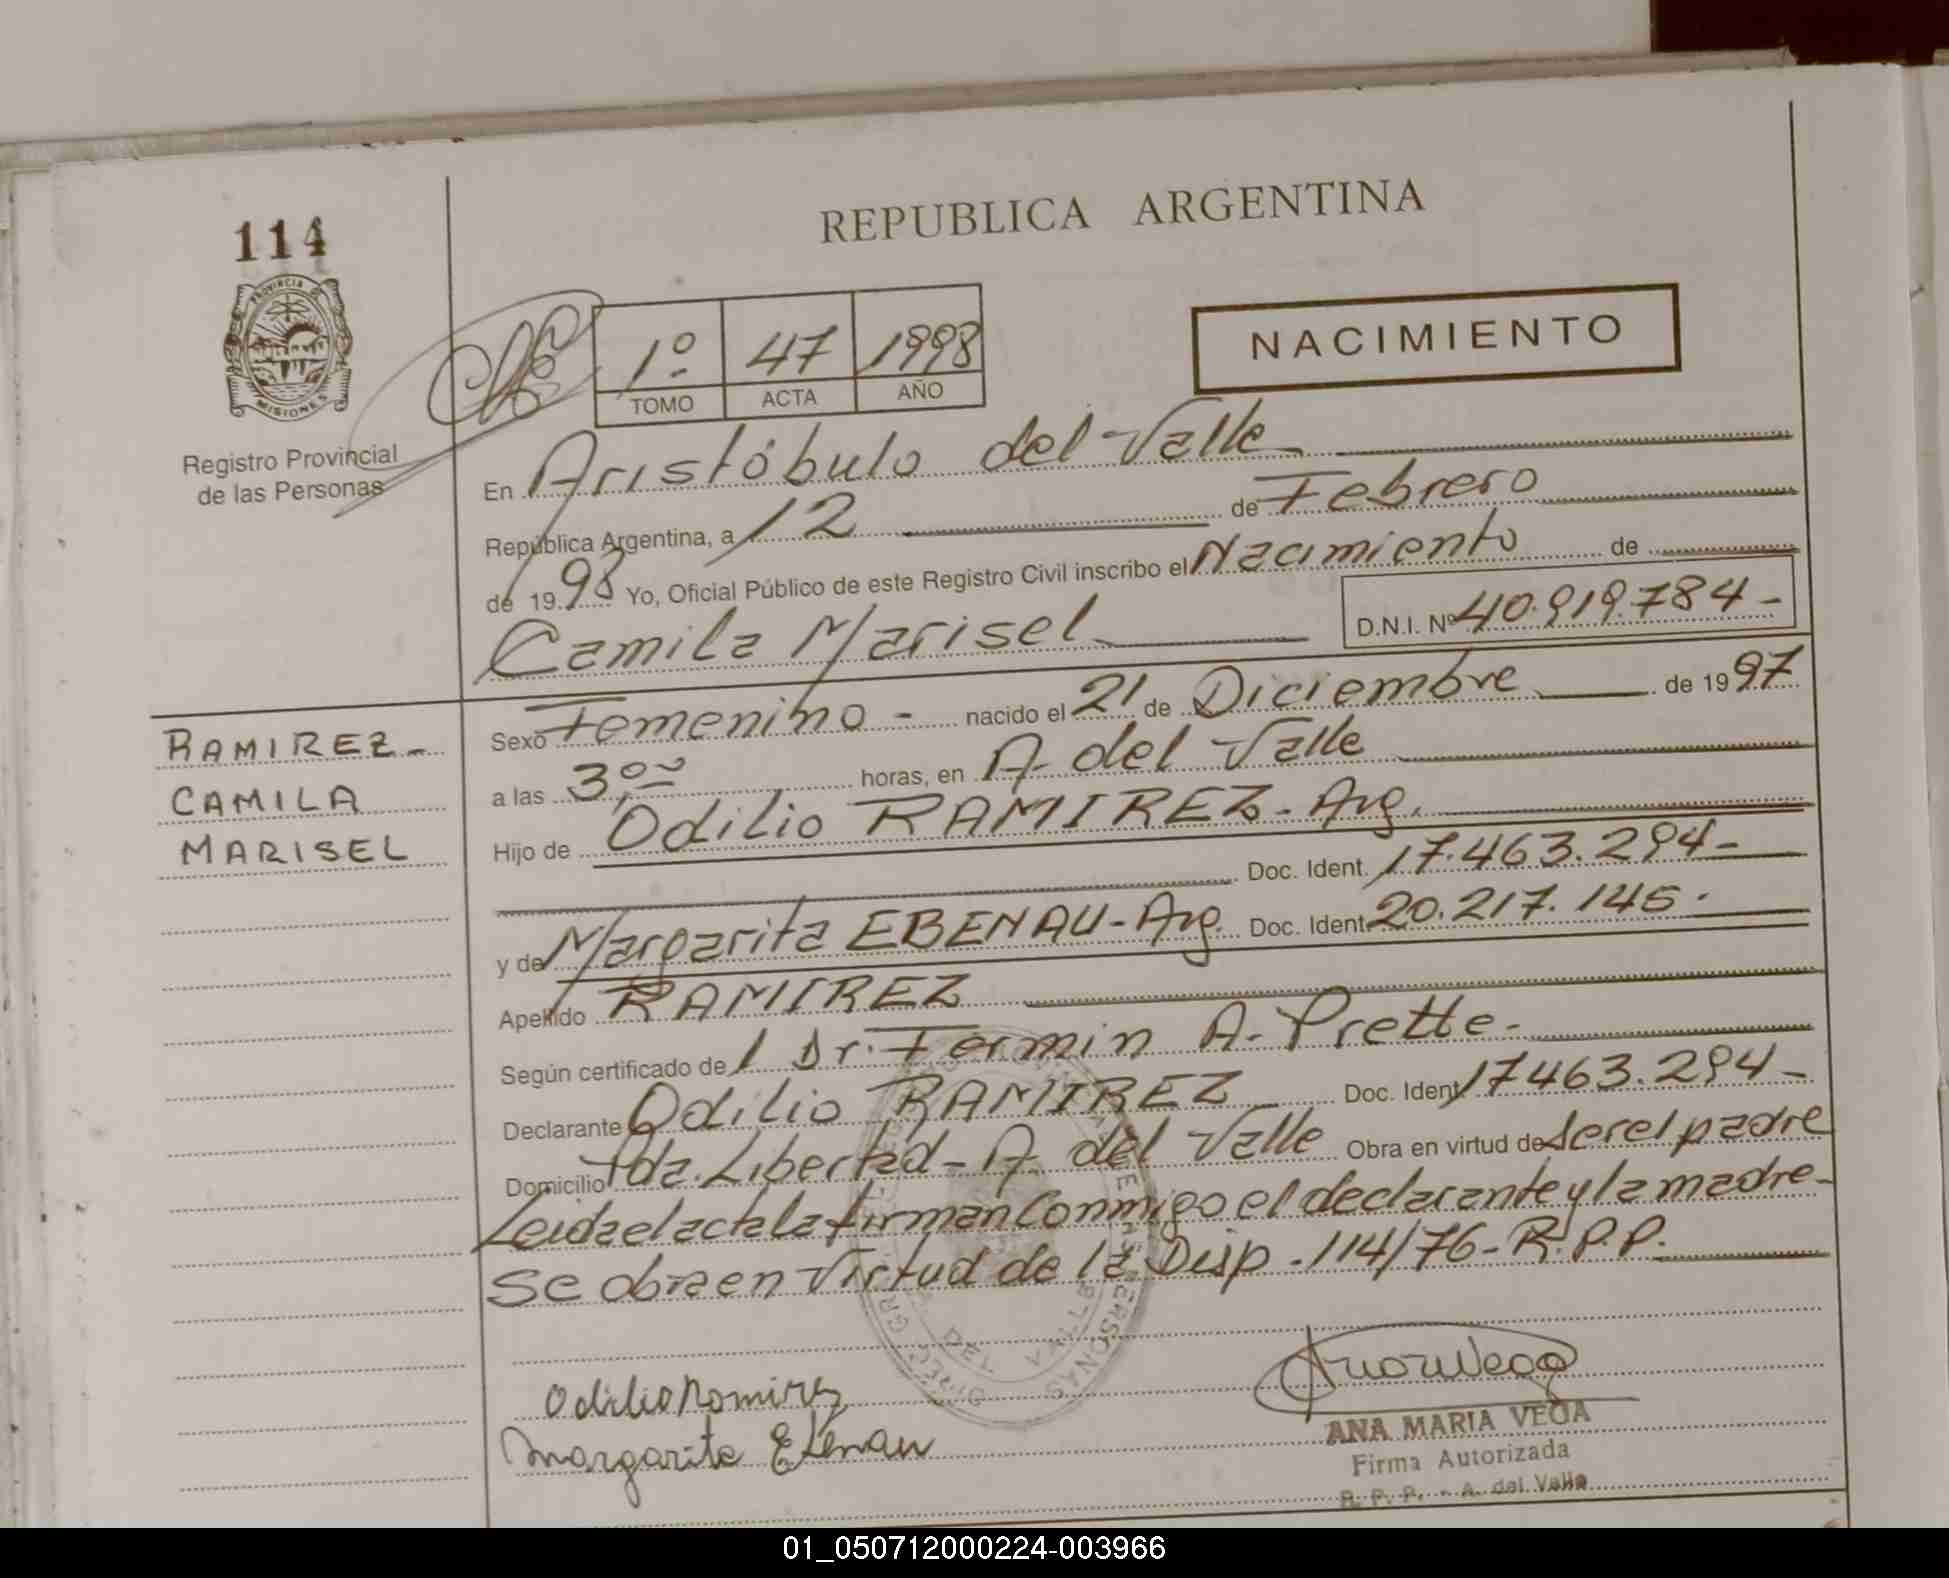 114
PROVINCIA
MISIONES
Registro Provincial
de las Personas
REPUBLICA ARGENTINA
NACIMIENTO
1º 47 1998
TOMO ACTA AÑO
En Aristóbulo del Valle
República Argentina, a 12 de Febrero
de 1998 Yo, Oficial Público de este Registro Civil inscribo el Nacimiento de
Camila Marisel D.N.I. Nº 40.919.784-
RAMIREZ-
CAMILA
MARISEL
Sexo Femenino - nacido el 21 de Diciembre de 1997
a las 3,00 horas, en A. del Valle
Hijo de Odilio RAMIREZ - Arg.
Doc. Ident. 17.463.294-
y de Margarita EBENAU - Arg. Doc. Ident. 20.217.145.
Apellido RAMIREZ
Según certificado de 1 Dr. Fermin A. Prette-
Declarante Odilio RAMIREZ Doc. Ident. 17463.294-
Domicilio Pda. Libertad - A. del Valle Obra en virtud de ser el padre
Leida el acta la firman conmigo el declarante y la madre-
Se obra en virtud de la Disp. 114/76 - R.P.P.
Odilio Ramirez
Margarita Ebenau
ANA MARIA VEGA
Firma Autorizada
R. P. P. - A. del Valle
01_050712000224-003966